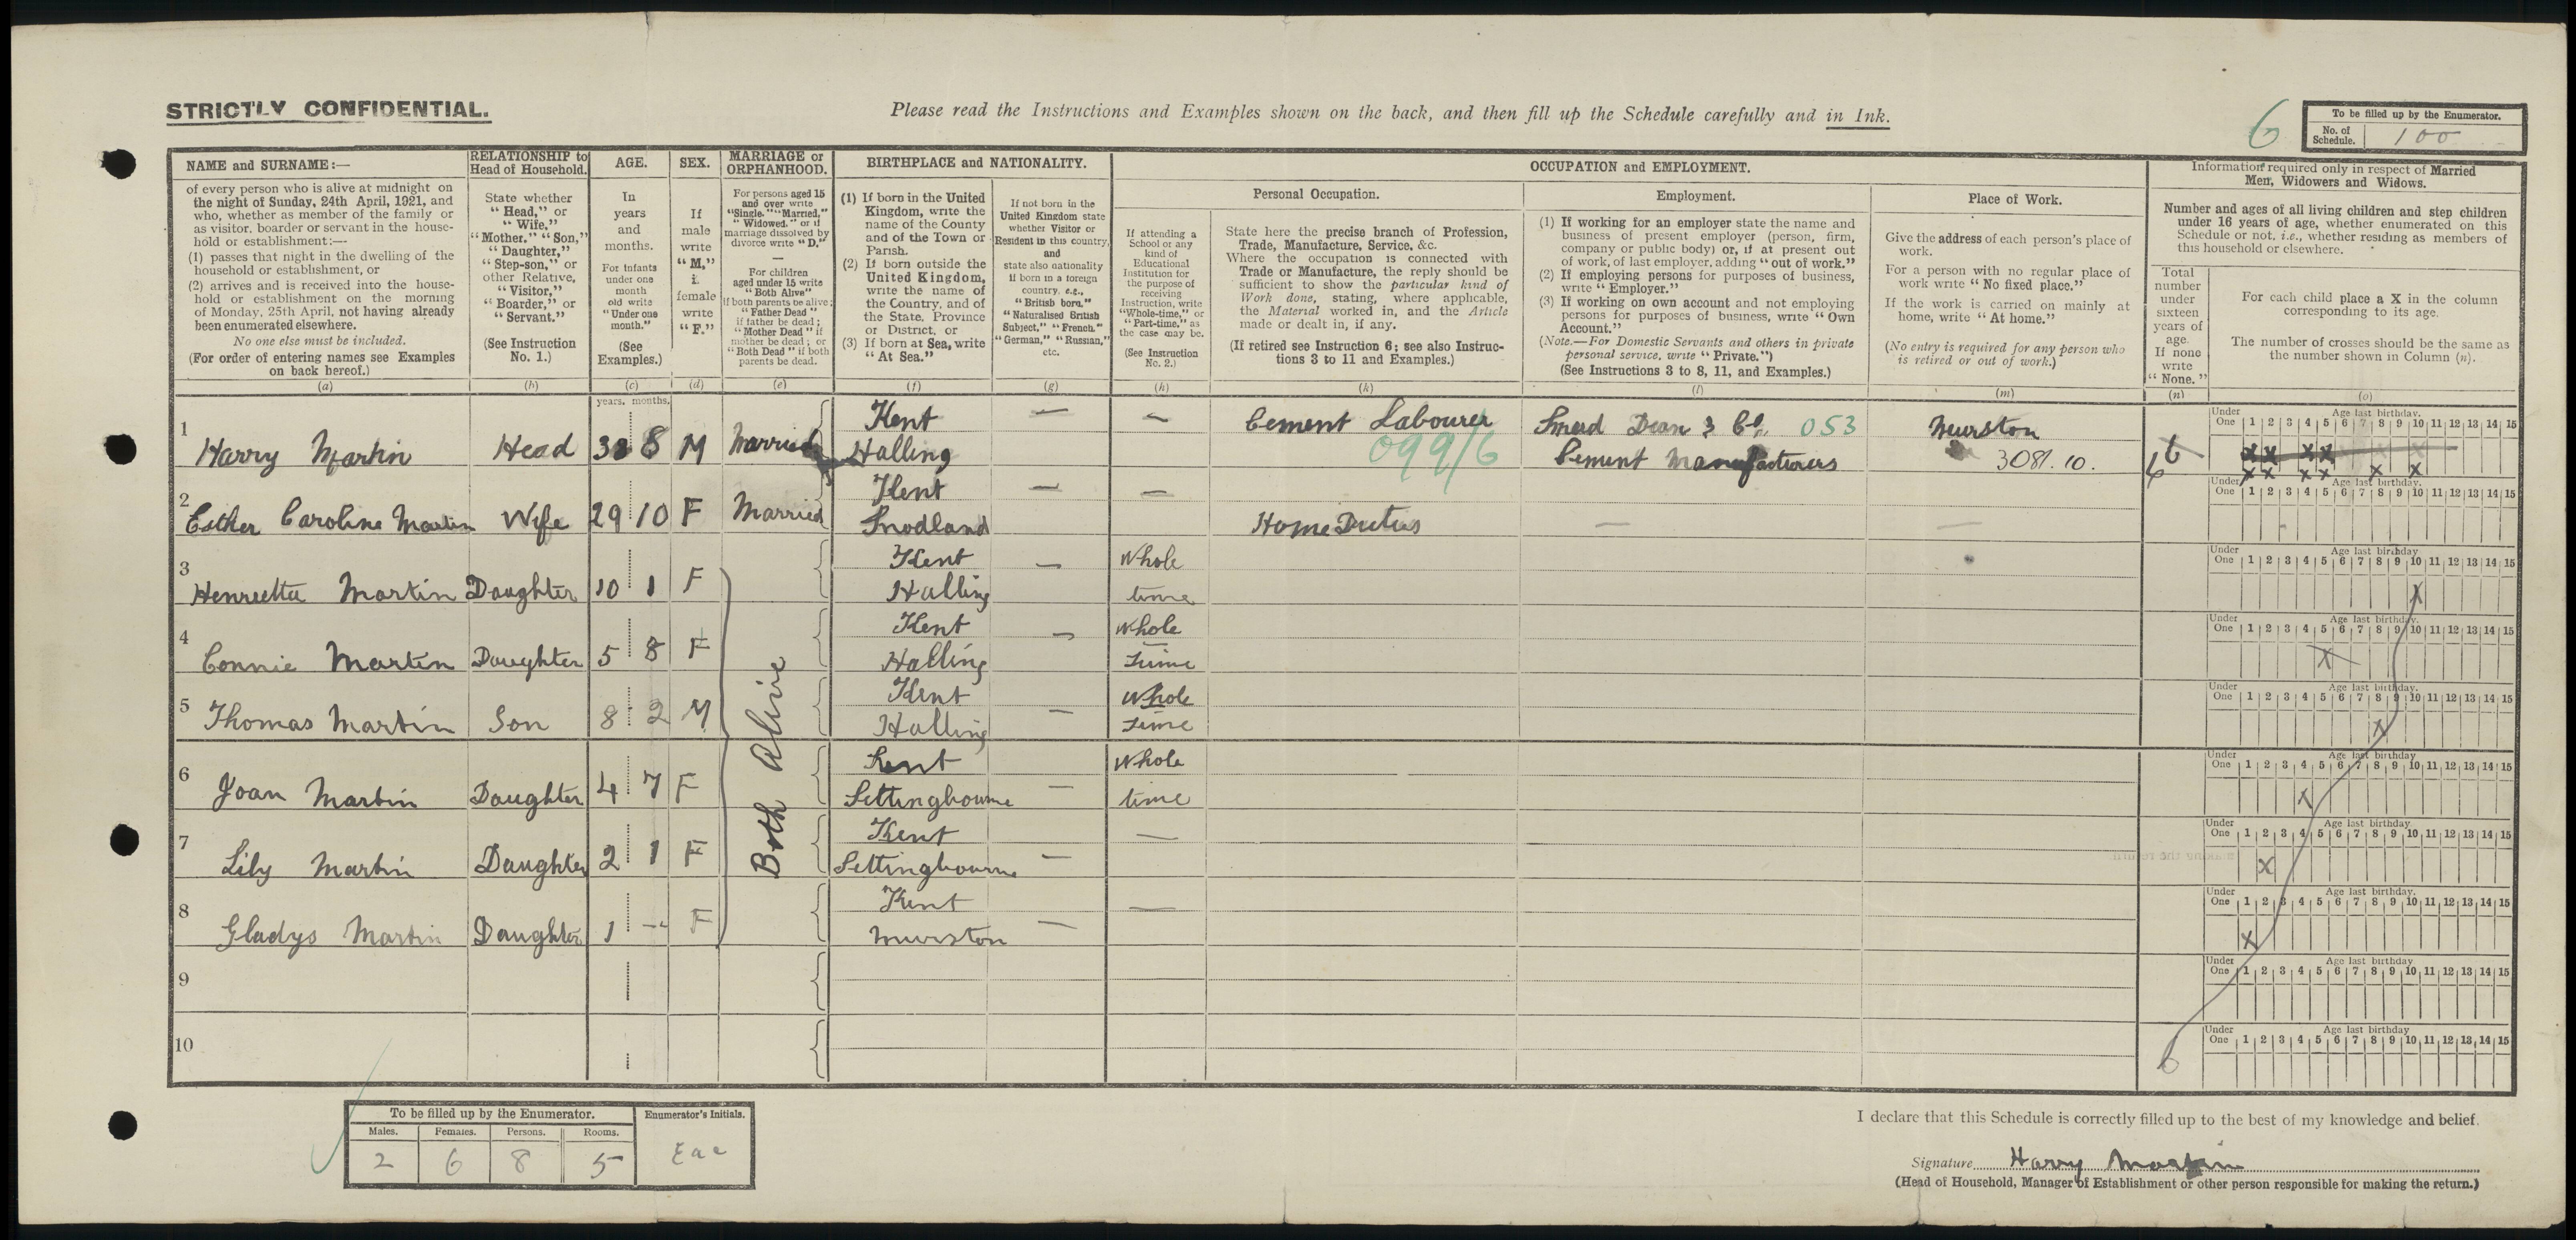 STRICTLY CONFIDENTIAL.
Please read the Instructions and Examples shown on the back, and then fill up the Schedule carefully and in Ink.
6
To be filled up by the Enumerator.
No. of Schedule. 100
NAME and SURNAME:—
of every person who is alive at midnight on
the night of Sunday, 24th April, 1921, and
who, whether as member of the family or
as visitor, boarder or servant in the house-
hold or establishment:—
(1) passes that night in the dwelling of the
household or establishment, or
(2) arrives and is received into the house-
hold or establishment on the morning
of Monday, 25th April, not having already
been enumerated elsewhere.
No one else must be included.
(For order of entering names see Examples
on back hereof.)
(a)
RELATIONSHIP to
Head of Household.
State whether
"Head," or
"Wife,"
"Mother," "Son,"
"Daughter,"
"Step-son," or
other Relative,
"Visitor,"
"Boarder," or
"Servant."
(See Instruction
No. 1.)
(b)
AGE.
In
years
and
months.
For infants
under one
month
old write
"Under one
month."
(See
Examples.)
(c)
SEX.
If
male
write
"M,"
if
female
write
"F."
(d)
MARRIAGE or
ORPHANHOOD.
For persons aged 15
and over write
"Single," "Married,"
"Widowed," or if
marriage dissolved by
divorce write "D."
—
For children
aged under 15 write
"Both Alive"
if both parents be alive;
"Father Dead"
if father be dead;
"Mother Dead" if
mother be dead; or
"Both Dead" if both
parents be dead.
(e)
BIRTHPLACE and NATIONALITY.
(1) If born in the United
Kingdom, write the
name of the County
and of the Town or
Parish.
(2) If born outside the
United Kingdom,
write the name of
the Country, and of
the State, Province
or District, or
(3) If born at Sea, write
"At Sea."
(f)
If not born in the
United Kingdom state
whether Visitor or
Resident in this country,
and
state also nationality
if born in a foreign
country, e.g.,
"British born,"
"Naturalised British
Subject," "French,"
"German," "Russian,"
etc.
(g)
OCCUPATION and EMPLOYMENT.
If attending a
School or any
kind of
Educational
Institution for
the purpose of
receiving
Instruction, write
"Whole-time," or
"Part-time," as
the case may be.
(See Instruction
No. 2.)
(h)
Personal Occupation.
State here the precise branch of Profession,
Trade, Manufacture, Service, &c.
Where the occupation is connected with
Trade or Manufacture, the reply should be
sufficient to show the particular kind of
Work done, stating, where applicable,
the Material worked in, and the Article
made or dealt in, if any.
(If retired see Instruction 6; see also Instruc-
tions 3 to 11 and Examples.)
(k)
Employment.
(1) If working for an employer state the name and
business of present employer (person, firm,
company or public body) or, if at present out
of work, of last employer, adding "out of work."
(2) If employing persons for purposes of business,
write "Employer."
(3) If working on own account and not employing
persons for purposes of business, write "Own
Account."
(Note.—For Domestic Servants and others in private
personal service, write "Private.")
(See Instructions 3 to 8, 11, and Examples.)
(l)
Place of Work.
Give the address of each person's place of
work.
For a person with no regular place of
work write "No fixed place."
If the work is carried on mainly at
home, write "At home."
(No entry is required for any person who
is retired or out of work.)
(m)
Information required only in respect of Married
Men, Widowers and Widows.
Number and ages of all living children and step children
under 16 years of age, whether enumerated on this
Schedule or not, i.e., whether residing as members of
this household or elsewhere.
Total
number
under
sixteen
years of
age.
If none
write
"None."
(n)
For each child place a X in the column
corresponding to its age.
The number of crosses should be the same as
the number shown in Column (n).
(o)
years. months.
Under One Age last birthday. 1 2 3 4 5 6 7 8 9 10 11 12 13 14 15
1 Harry Martin Head 8 M Married Kent Halling — — Cement Labourer 099/6 Smeed Dean & Co. 053 Cement Manufacturers Murston 3081.10. 6
Under One Age last birthday. 1 2 3 4 5 6 7 8 9 10 11 12 13 14 15
2 Esther Caroline Martin Wife 29 10 F Married Kent Snodland — — Home Duties — —
Under One Age last birthday 1 2 3 4 5 6 7 8 9 10 11 12 13 14 15
3 Henrietta Martin Daughter 10 1 F Kent Halling — Whole time X
Under One Age last birthday. 1 2 3 4 5 6 7 8 9 10 11 12 13 14 15
4 Connie Martin Daughter 5 8 F Kent Halling — Whole Time X
Under One Age last birthday. 1 2 3 4 5 6 7 8 9 10 11 12 13 14 15
5 Thomas Martin Son 8 2 M Both Alive Kent Halling — Whole time X
Under One Age last birthday 1 2 3 4 5 6 7 8 9 10 11 12 13 14 15
6 Joan Martin Daughter 4 7 F Kent Sittingbourne — Whole time X
Under One Age last birthday 1 2 3 4 5 6 7 8 9 10 11 12 13 14 15
7 Lily Martin Daughter 2 1 F Kent Sittingbourne — — X
Under One Age last birthday. 1 2 3 4 5 6 7 8 9 10 11 12 13 14 15
8 Gladys Martin Daughter 1 — F Kent Murston — — X
Under One Age last birthday 1 2 3 4 5 6 7 8 9 10 11 12 13 14 15
9
Under One Age last birthday 1 2 3 4 5 6 7 8 9 10 11 12 13 14 15
10 6
To be filled up by the Enumerator. Enumerator's Initials.
Males. Females. Persons. Rooms.
2 6 8 5
I declare that this Schedule is correctly filled up to the best of my knowledge and belief.
Signature Harry Martin
(Head of Household, Manager of Establishment or other person responsible for making the return.)